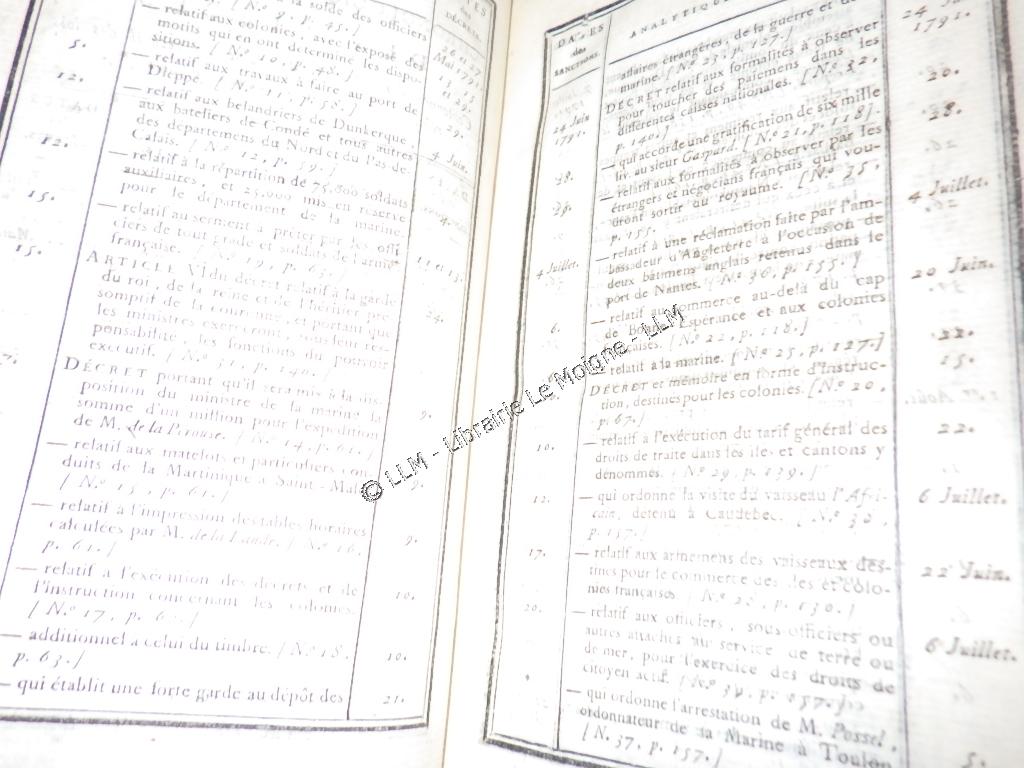 la solde des officiers
[N.º 9, p. 45.]
— relatif aux colonies, avec l'exposé des
motifs qui en ont déterminé les dispo-
sitions. [N.º 10, p. 48.]
— relatif aux travaux à faire au port de
Dieppe. [N.º 11, p. 58.]
— relatif aux belandriers de Dunkerque,
aux bateliers de Condé et tous autres
des départemens du Nord et du Pas-de-
Calais. [N.º 12, p. 59.]
— relatif à la répartition de 75,000 soldats
auxiliaires, et 25,000 mis en réserve
pour le département de la marine.
— relatif au serment à prêter par les offi-
ciers de tout grade et soldats de l'armée
française. [N.º 19, p. 63.]
ARTICLE VI du décret relatif à la garde
du roi, de la reine et de l'héritier pré-
somptif de la couronne, et portant que
les ministres exerceront, sous leur res-
ponsabilité, les fonctions du pouvoir
exécutif. [N.º 31, p. 140.]
DÉCRET portant qu'il sera mis à la dis-
position du ministre de la marine la
somme d'un million pour l'expédition
de M. de la Pérouse. [N.º 14, p. 61.]
— relatif aux matelots et particuliers con-
duits de la Martinique à Saint-Malo
[N.º 15, p. 61.]
— relatif à l'impression des tables horaires
calculées par M. de la Lande. [N.º 16,
p. 61.]
— relatif à l'exécution des décrets et de
l'instruction concernant les colonies.
[N.º 17, p. 62.]
— additionnel à celui du timbre. [N.º 18,
p. 63.]
— qui établit une forte garde au dépôt des
5.
12.
12.
15.
15.
DÉCRETS.
29.
4 Juin.
4.
24.
9.
9.
9.
10.
10.
21.
DATES
des
SANCTIONS.
24 Juin
1791.
28.
29.
4 Juillet.
6.
10.
12.
17.
20.
ANALYTIQUE
affaires étrangères, de la guerre et de
marine. [N.º 23, p. 127.]
DÉCRET relatif aux formalités à observer
pour toucher des paiemens dans les
différentes caisses nationales. [N.º 32,
p. 140.]
— qui accorde une gratification de six mille
liv. au sieur Gaspard. [N.º 21, p. 118].
— relatif aux formalités à observer par les
étrangers et négocians français qui vou-
dront sortir du royaume. [N.º 35,
p. 155.]
— relatif à une réclamation faite par l'am-
bassadeur d'Angleterre à l'occasion de
deux bâtimens anglais retenus dans le
port de Nantes. [N.º 36, p. 155.]
— relatif au commerce au-delà du cap
de Bonne-Espérance et aux colonies
françaises. [N.º 22, p. 118.]
— relatif à la marine. [N.º 25, p. 127.]
DÉCRET et mémoire en forme d'instruc-
tion, destinés pour les colonies. [N.º 20,
p. 67.]
— relatif à l'exécution du tarif général des
droits de traite dans les îles et cantons y
dénommés. [N.º 29, p. 139.]
— qui ordonne la visite du vaisseau l'Afri-
cain, détenu à Caudebec. [N.º 38,
p. 157.]
— relatif aux armemens des vaisseaux des-
tinés pour le commerce des îles et colo-
nies françaises. [N.º 28, p. 130.]
— relatif aux officiers, sous-officiers ou
autres attachés au service de terre ou
de mer, pour l'exercice des droits de
citoyen actif. [N.º 39, p. 157.]
— qui ordonne l'arrestation de M. Possel,
ordonnateur de la Marine à Toulon
[N. 37, p. 157.]
24 Juin
1791.
20.
28.
4 Juillet.
20 Juin.
22.
15.
22.
6 Juillet.
22 Juin.
6 Juillet.
5.
© LLM - Librairie Le Moigne - LLM